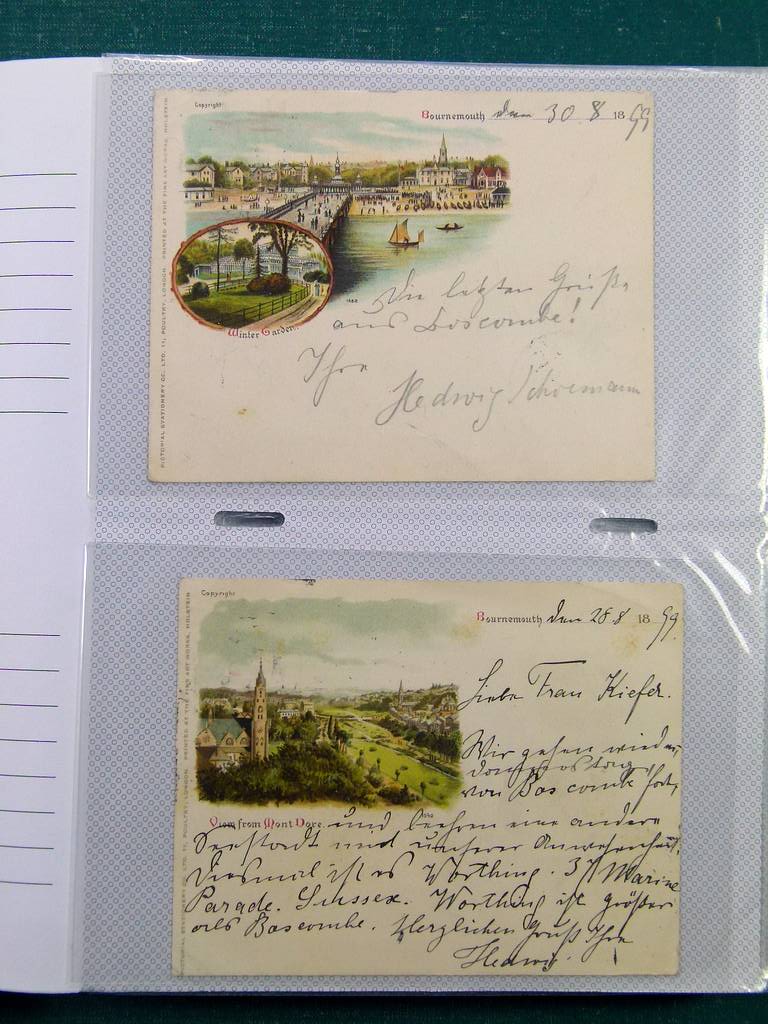 Copyright
Bournemouth den 30 8 1899
Winter Garden.
Die letzten Grüße
aus Boscombe!
Ihre
Hedwig Schoemann
PICTORIAL STATIONERY CO. LTD. 11, POULTRY, LONDON. PRINTED AT THE FINE ART WORKS, HOLSTEIN
Copyright
Bournemouth den 28.8 1899
Liebe Frau Kiefer.
Wir gehen wieder
donnerstag
von Boscombe fort,
View from Mont Dore.
und beehren eine andere
Seestadt mit unserer Anwesenheit.
Diesmal ist es Worthing. 37 Marine
Parade. Sussex. Worthing ist größer
als Boscombe. Herzlichen Gruß Ihre
Hedwig.
PICTORIAL STATIONERY CO. LTD. 11, POULTRY, LONDON. PRINTED AT THE FINE ART WORKS, HOLSTEIN